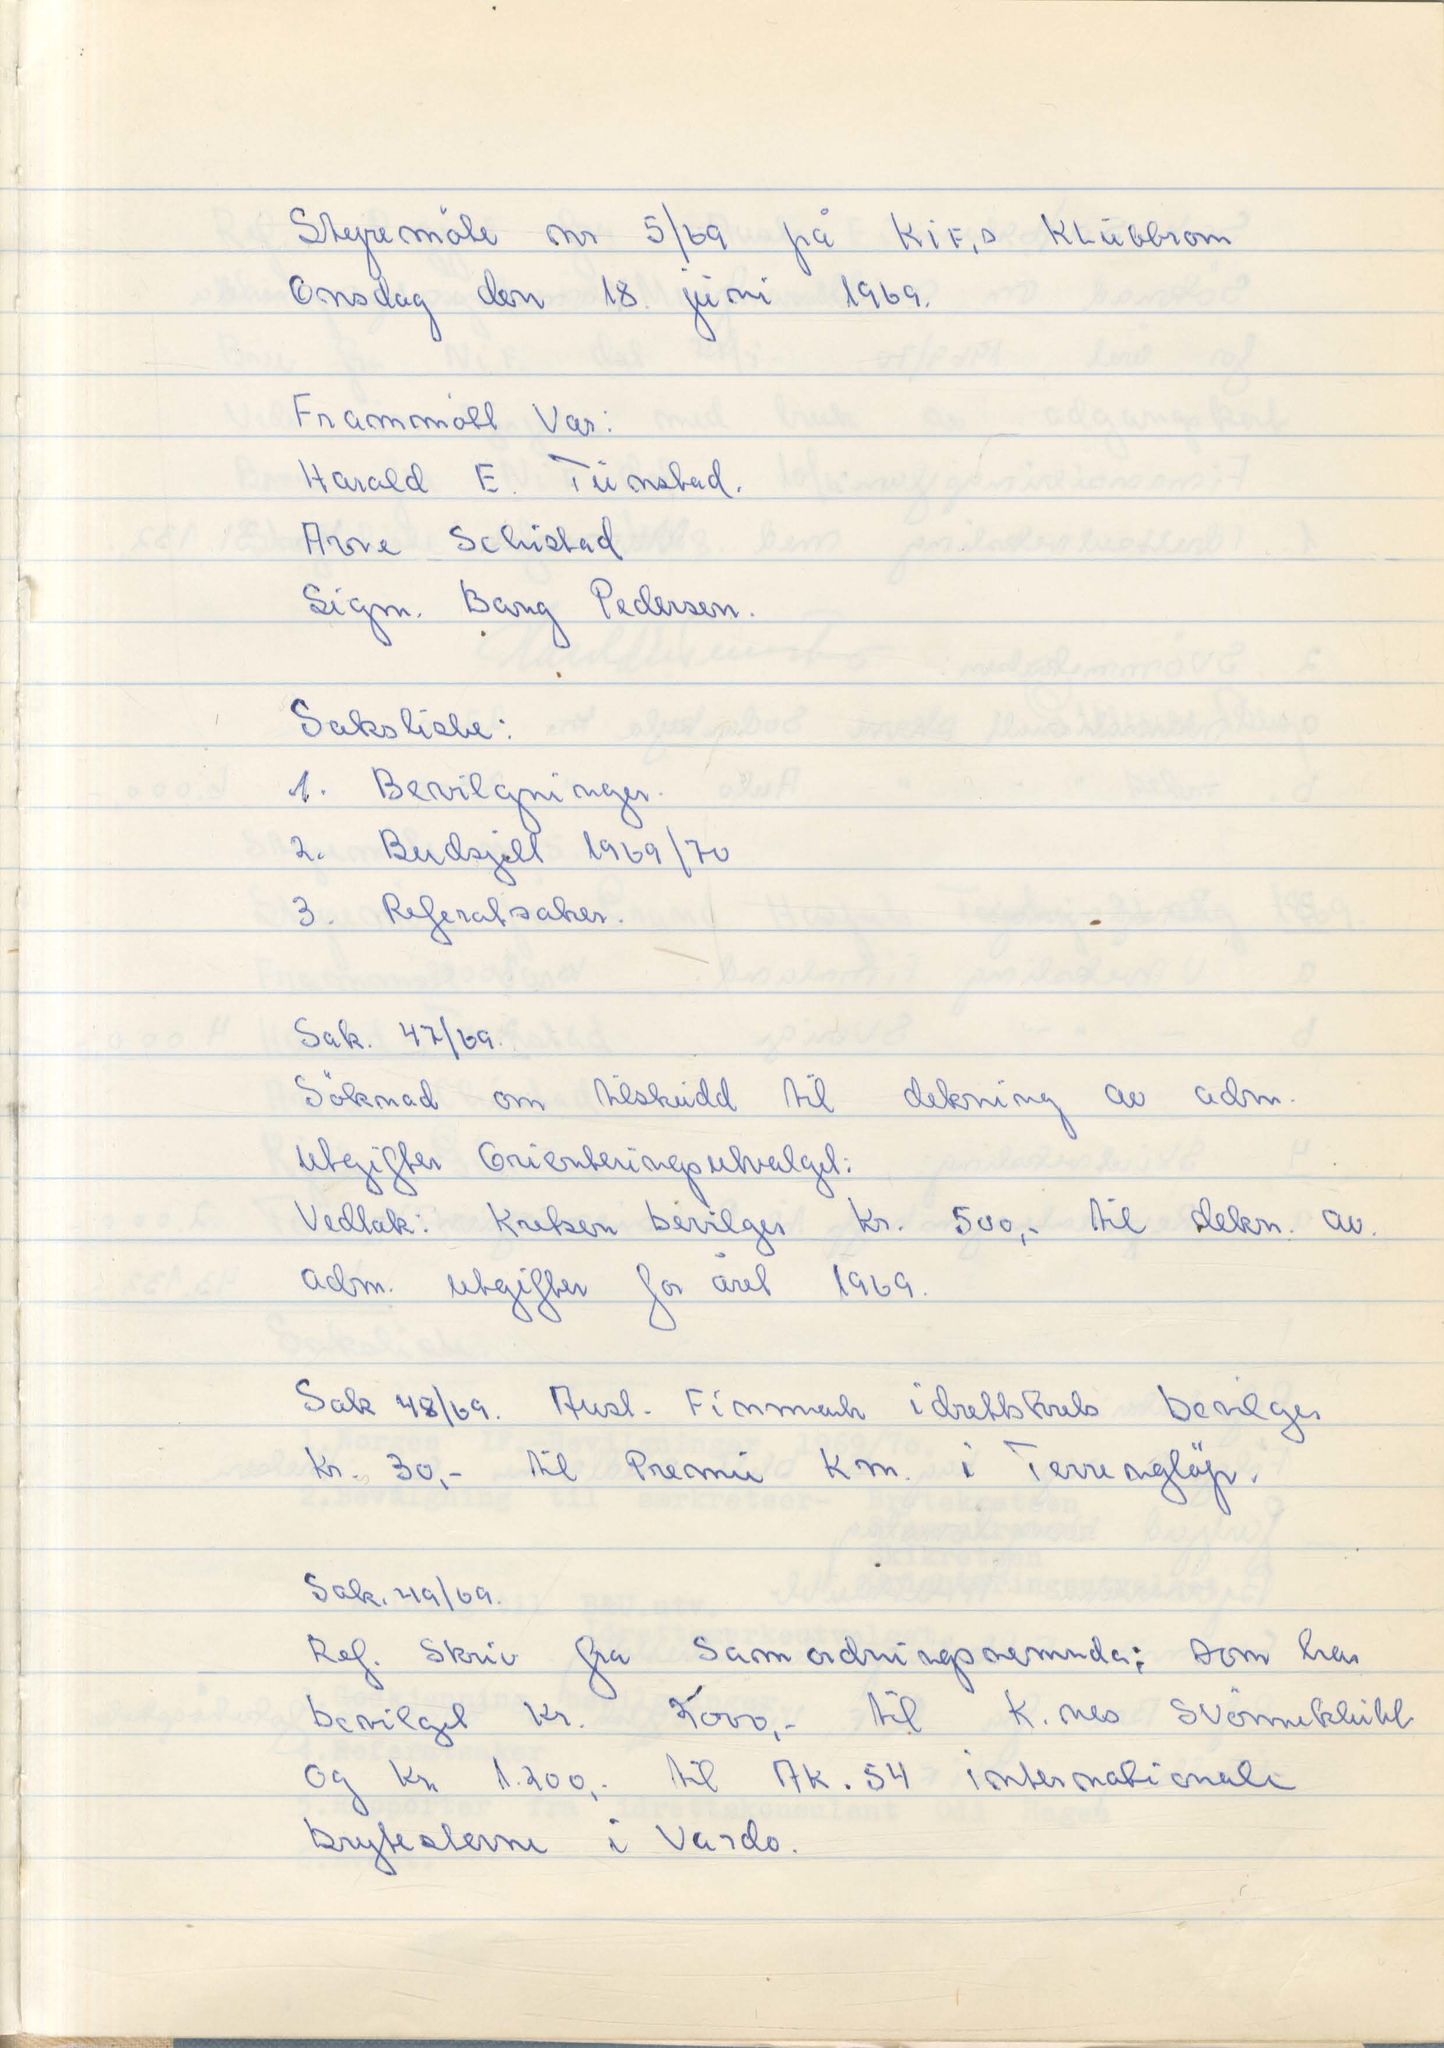 Styremöte nr 5/69 på KiF,s Klübbrom
Onsdag den 18. jüni 1969.
Frammött Var:
Harald E. Tünstad.
Arve Schistad
Sigm. Bang Pedersen.
Saksliste:
1. Bevilgninger.
2. Budsjett 1969/70
3. Referatsaker.
Sak. 47/69.
Söknad om tilskudd til dekning av adm.
utgifter Orienteringsutvalget:
Vedtak: Kretsen bevilger Kr. 500,- til dekn. av.
adm. utgifter for året 1969.
Sak 48/69. Aust. Finnmark idrettskrets bevilges
Kr. 30,- til Premie Km. i Terrengløp.
Sak. 49/69.
Ref. Skriv fra Samordningsnemnda; som har
bevilget Kr. til K.nes Svömmeklubb
og Kr. 1.200,- til AK. 54 internationale
brytestevne i Vardo.